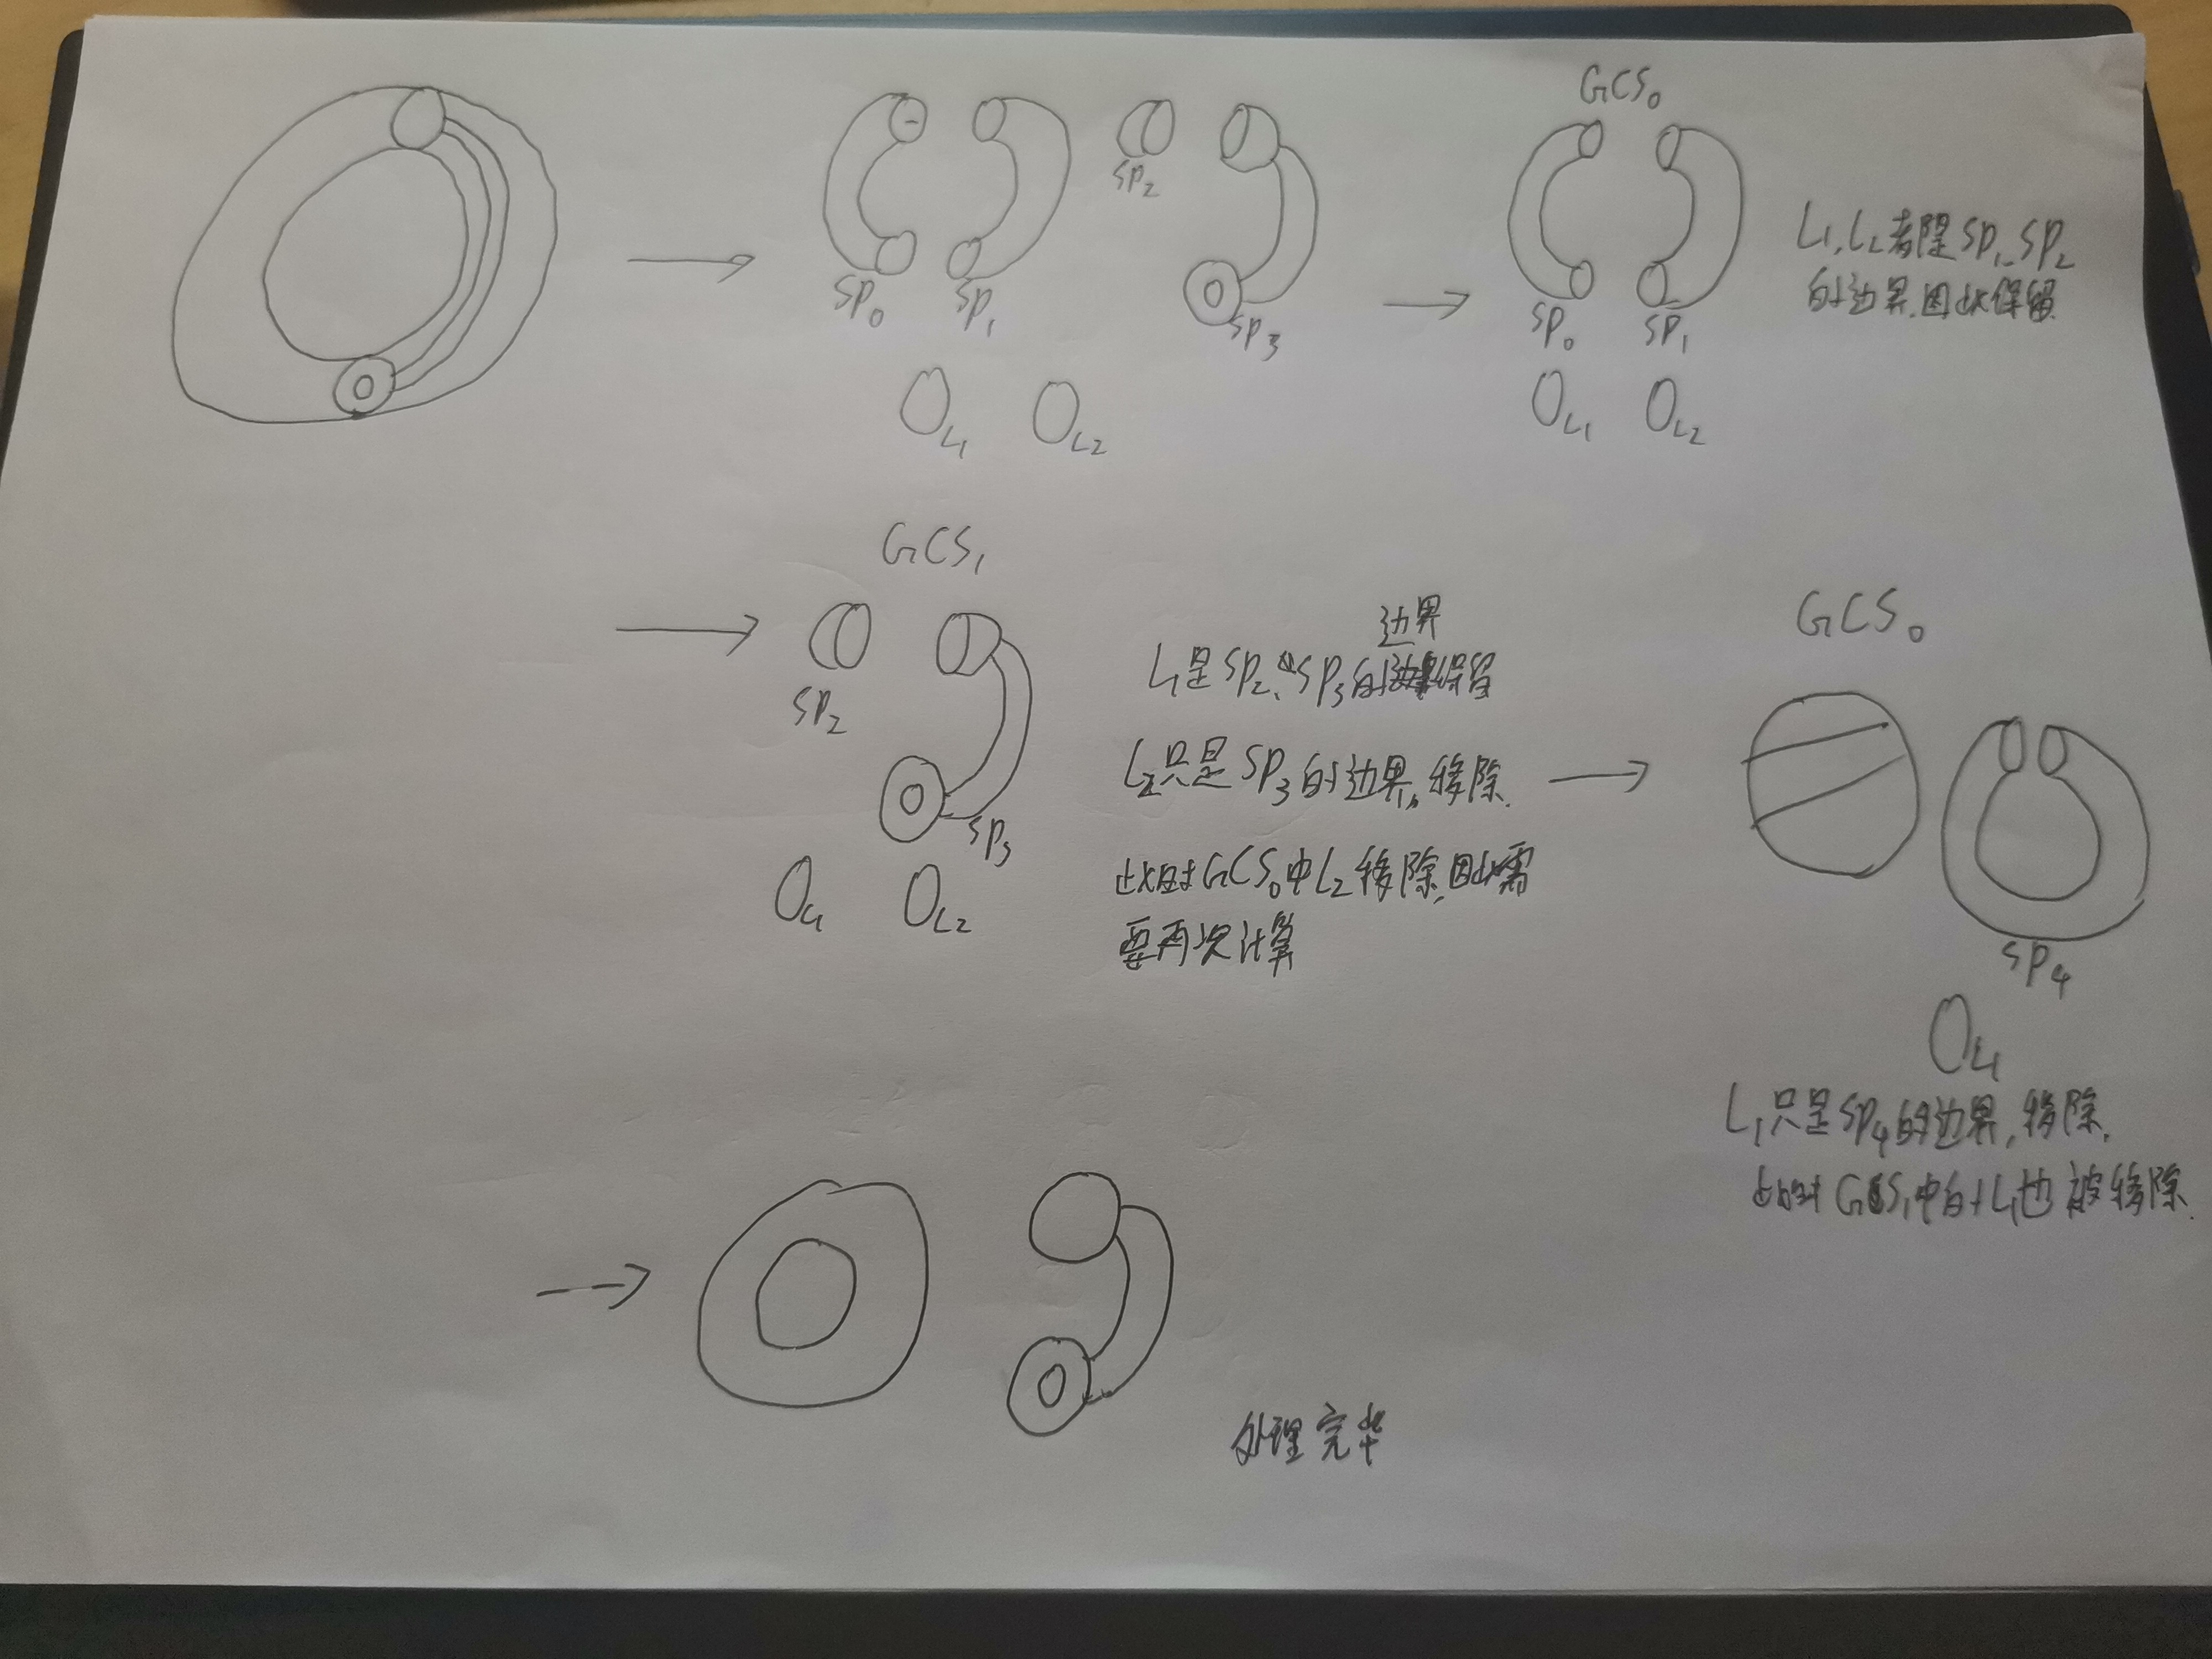 GCS₀
SP₂
SP₀
SP₁
SP₃
L₁
L₂
SP₀
SP₁
L₁
L₂
L₁,L₂都是SP₁、SP₂
的边界,因此保留
GCS₁
SP₂
SP₃
L₁
L₂
边界
L₁是SP₂、SP₃的保留
L₂只是SP₃的边界,移除.
此时GCS₀中L₂移除,因此需
要再次计算
GCS₀
SP₄
L₁
L₁只是SP₄的边界,移除.
此时GCS₁中的L₁也被移除.
处理完毕